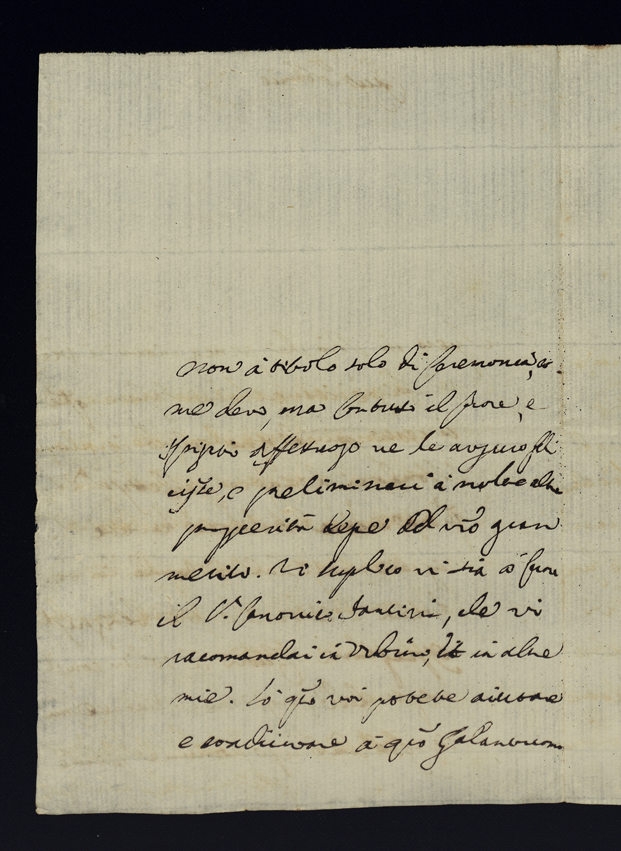 non à titolo solo di ceremonia, co-
me devo, ma con tutto il core, e
spirito affettuoso ve le auguro feli
cissime, e preliminari à molte altre
prosperità degne del vrõ gran
merito. Vi suplico vi sia à core
il Sr. Canonico Santini, che vi
racomandai in Urbino, et in altre
mie. Sò qto voi potete aiutare
e condiuare à qto Galantuom